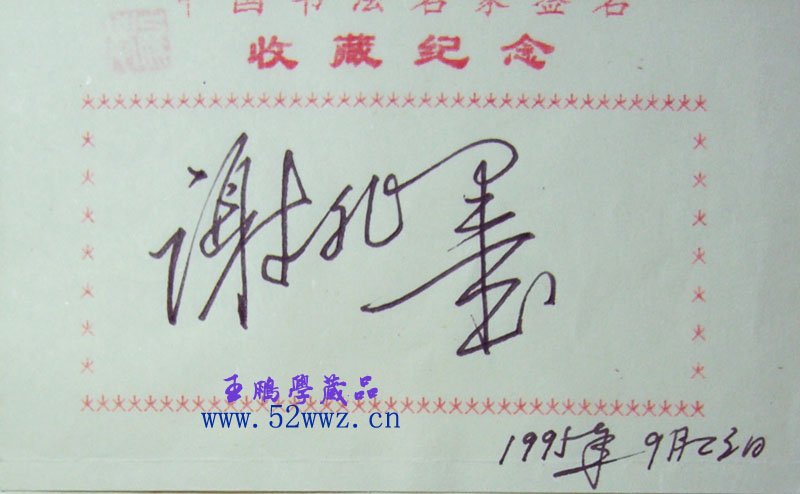 中国书法名家签名
收藏纪念
谢非墨
王鹏學藏品
www.52wwz.cn
1995年9月23日